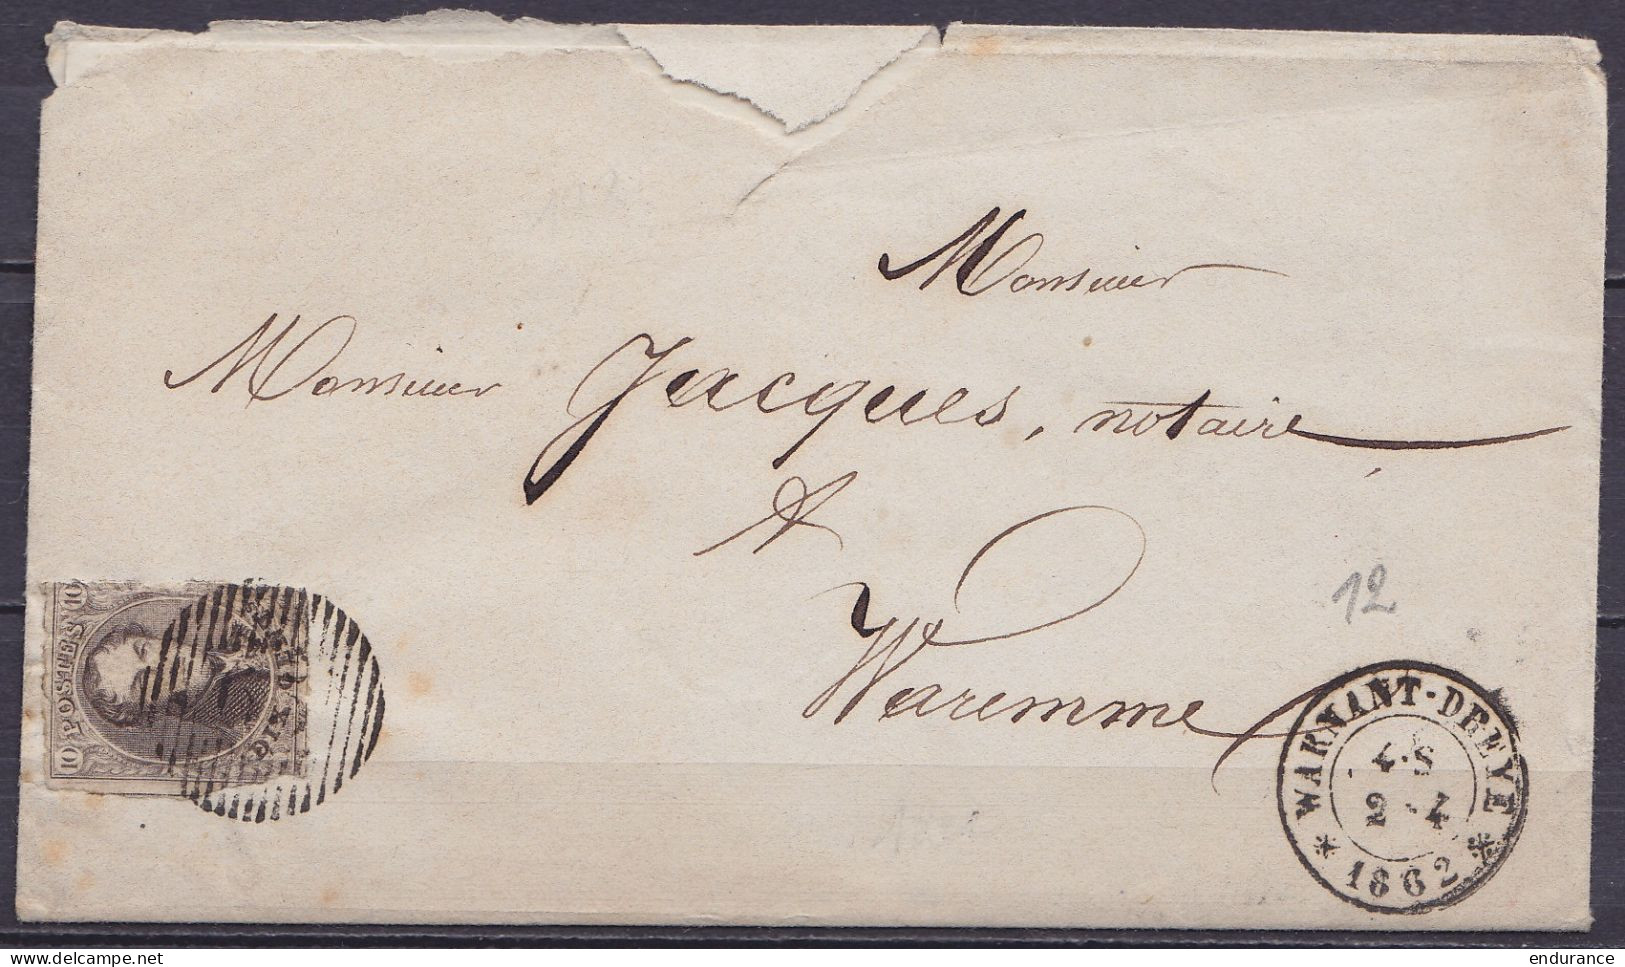 Monsieur
Monsieur Jacques, notaire
A
Waremme
12
POSTES
10
10
DIX
WARNANT-DREYE
4·S
2·4
* 1862 *
delcampe.net
endurance